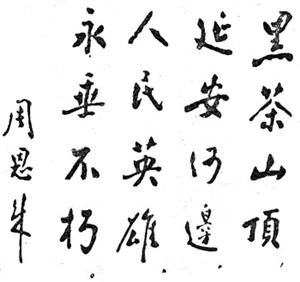 黑茶山頂
延安河邊
人民英雄
永垂不朽
周恩来